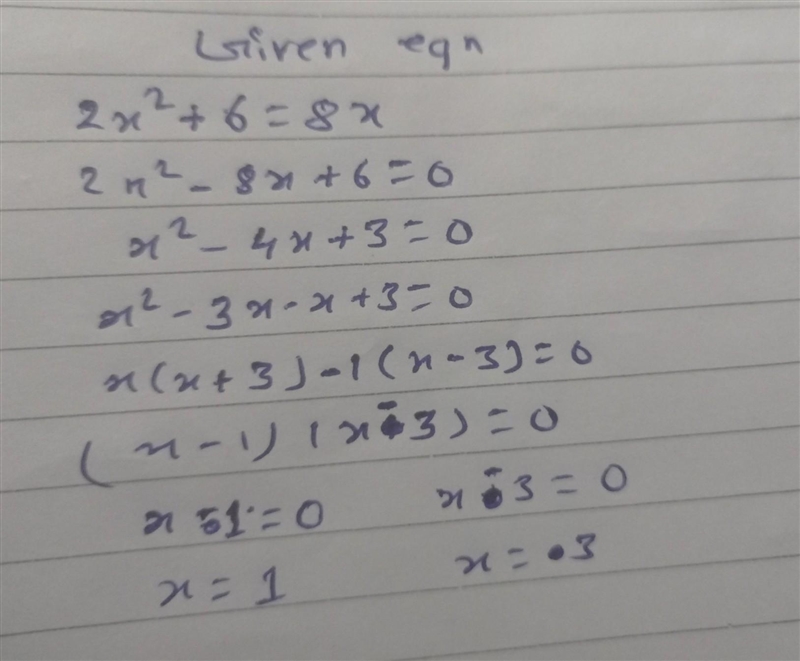 Given eqn
2x² + 6 = 8x
2x² - 8x + 6 = 0
x² - 4x + 3 = 0
x² - 3x - x + 3 = 0
x(x + 3) - 1(x - 3) = 0
(x - 1) (x - 3) = 0
x - 1 = 0 x - 3 = 0
x = 1 x = 3